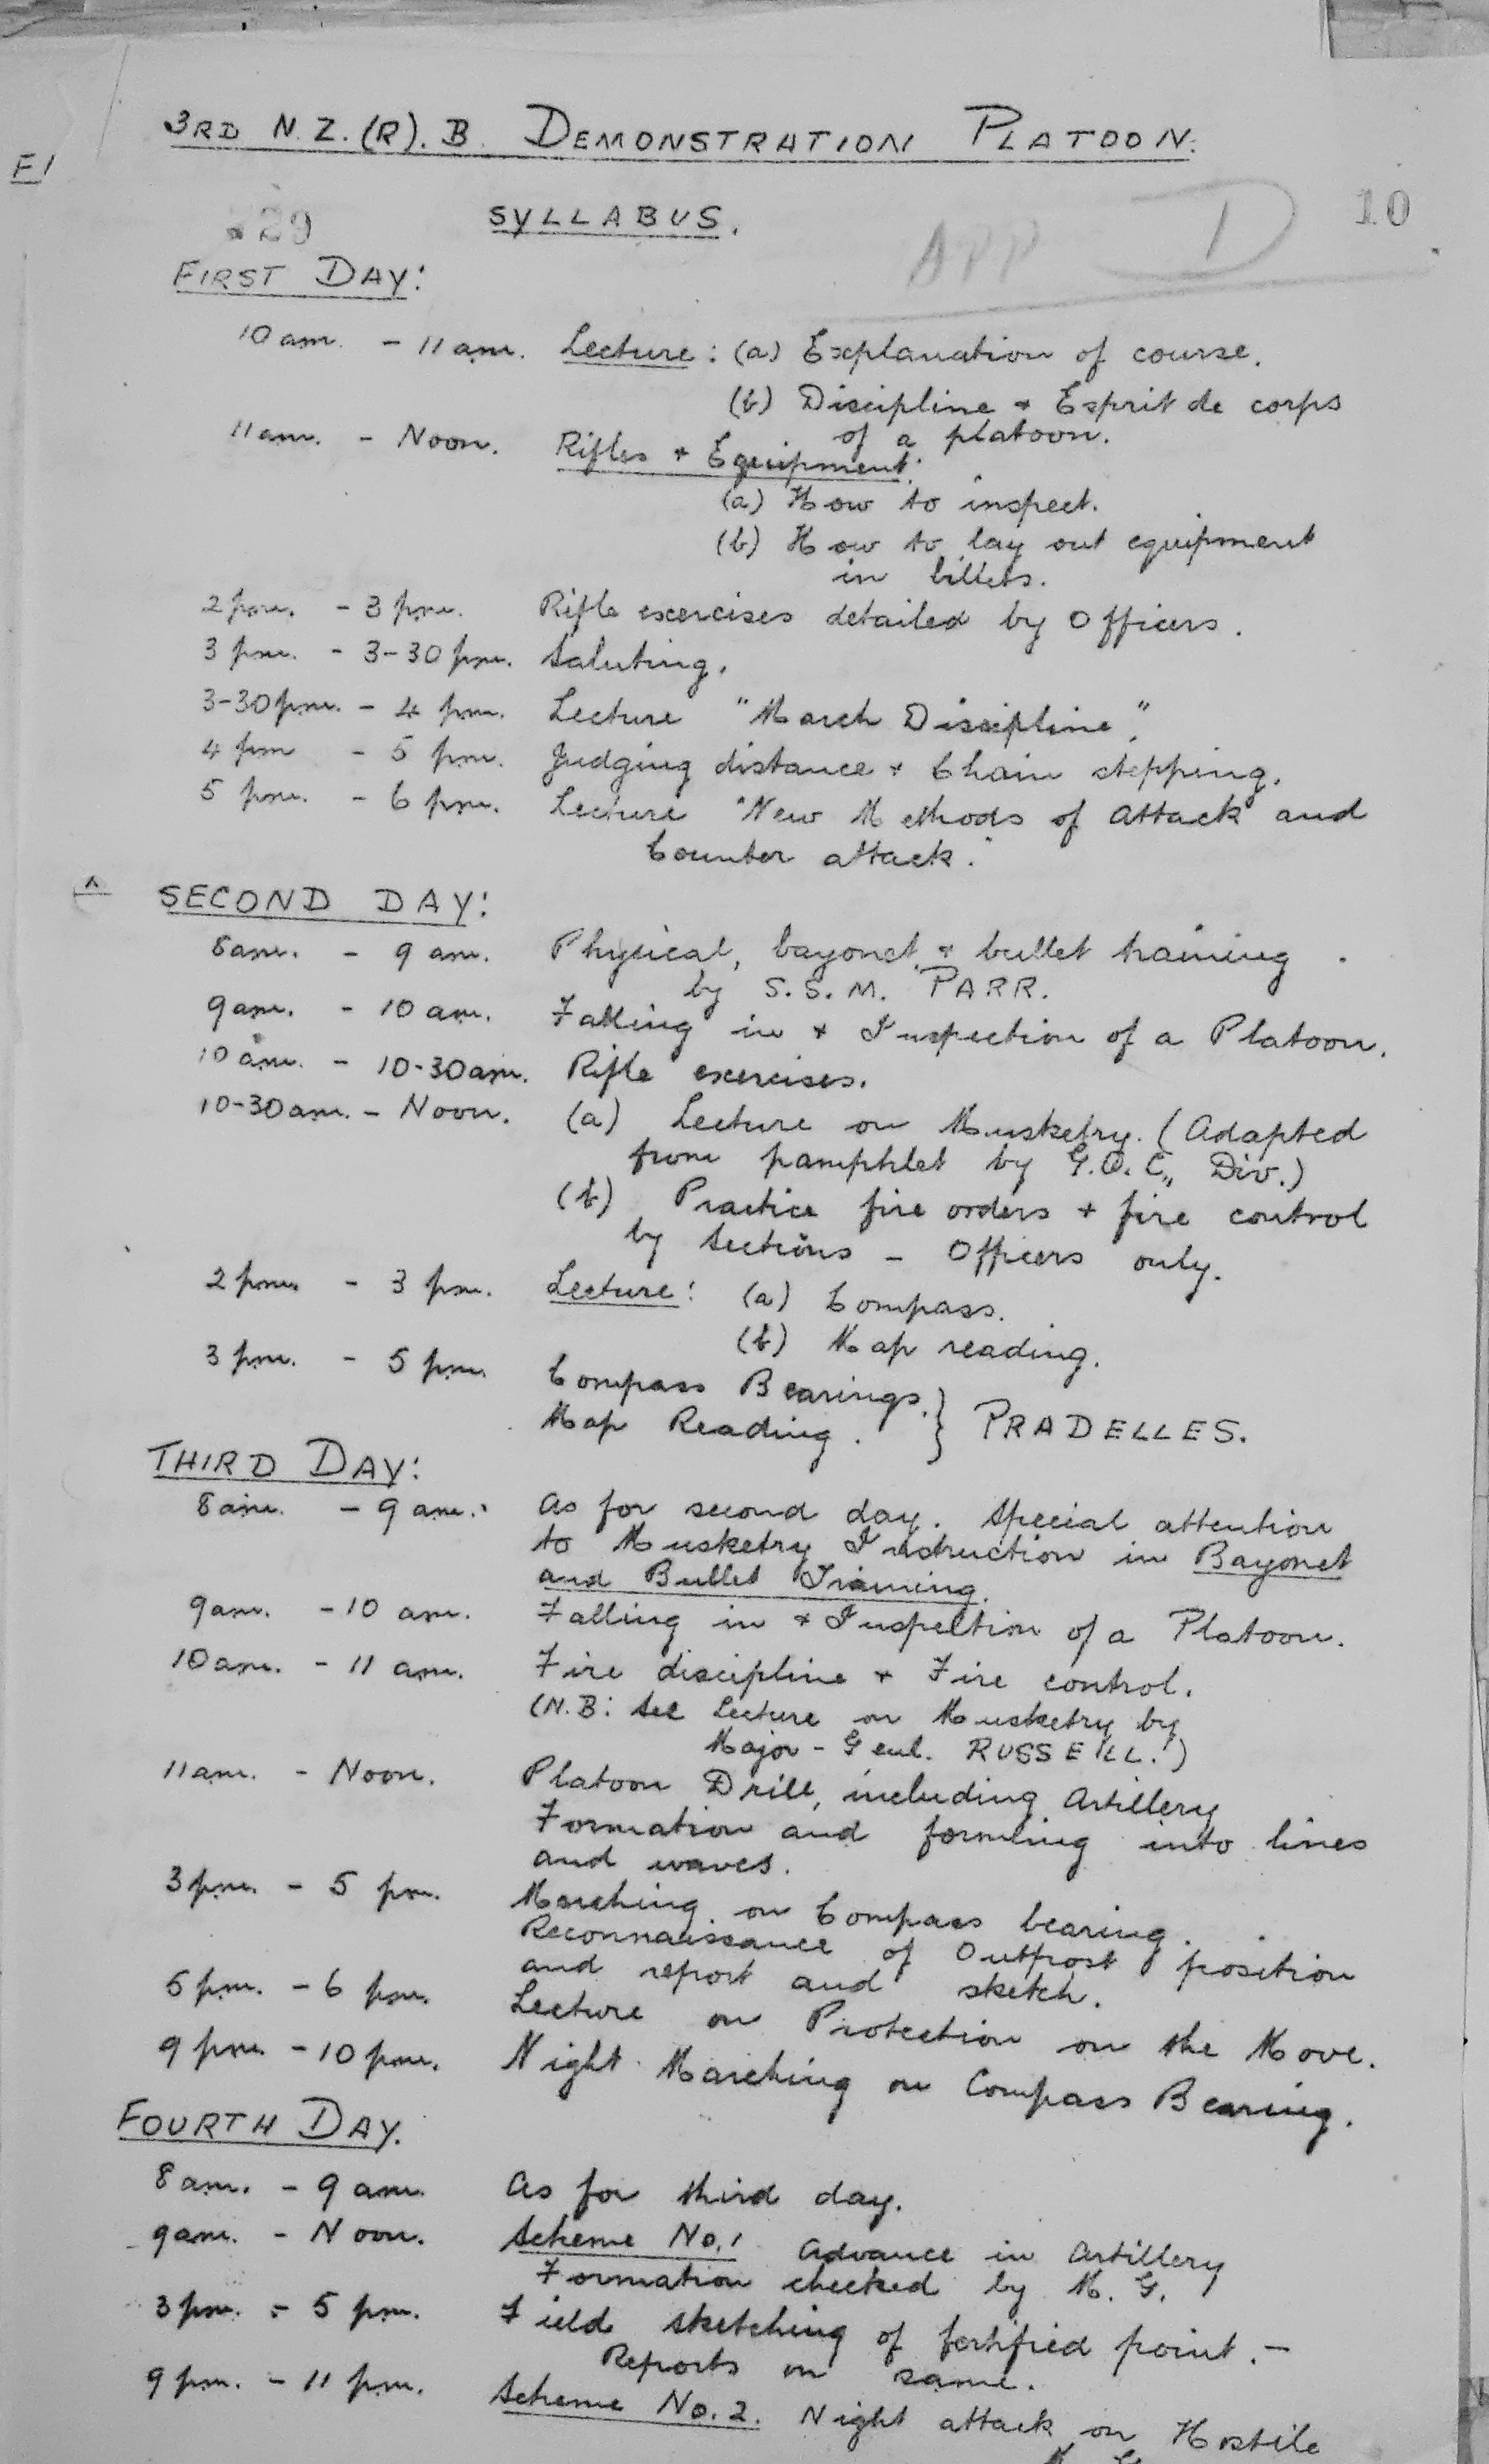 3RD N.Z.(R).B. DEMONSTRATION PLATOON.
E1
29
SYLLABUS.
APP D
10
FIRST DAY:
10 am. - 11 am. Lecture: (a) Explanation of course.
(b) Discipline + Esprit de corps
of a platoon.
11 am. - Noon. Rifles + Equipment.
(a) How to inspect.
(b) How to lay out equipment
in billets.
2 pm. - 3 pm. Rifle exercises detailed by Officers.
3 pm. - 3-30 pm. Saluting.
3-30 pm. - 4 pm. Lecture "March Discipline".
4 pm - 5 pm. Judging distance + Chain stepping.
5 pm. - 6 pm. Lecture "New Methods of Attack and
Counter attack."
SECOND DAY:
8 am. - 9 am. Physical, bayonet + bullet training
by S.S.M. PARR.
9 am. - 10 am. Falling in + Inspection of a Platoon.
10 am. - 10-30 am. Rifle exercises.
10-30 am. - Noon. (a) Lecture on Musketry. (Adapted
from pamphlet by G.O.C., Div.)
(b) Practice fire orders + fire control
by Sections - Officers only.
2 pm. - 3 pm. Lecture: (a) Compass.
(b) Map reading.
3 pm. - 5 pm. Compass Bearings. }
Map Reading. } PRADELLES.
THIRD DAY:
8 am. - 9 am. As for second day. Special attention
to Musketry Instruction in Bayonet
and Bullet Training.
9 am. - 10 am. Falling in + Inspection of a Platoon.
10 am. - 11 am. Fire discipline + Fire control.
(N.B: See Lecture on Musketry by
Major-Genl. RUSSELL.)
11 am. - Noon. Platoon Drill, including Artillery
Formation and forming into lines
and waves.
3 pm. - 5 pm. Marching on Compass bearing.
Reconnaissance of Outpost position
and report and sketch.
5 pm. - 6 pm. Lecture on Protection on the Move.
9 pm. - 10 pm. Night Marching on Compass Bearing.
FOURTH DAY.
8 am. - 9 am. As for third day.
9 am. - Noon. Scheme No. 1 Advance in Artillery
Formation checked by M.G.
3 pm. - 5 pm. Field sketching of fortified point. -
Reports on same.
9 pm. - 11 pm. Scheme No. 2. Night attack on Hostile